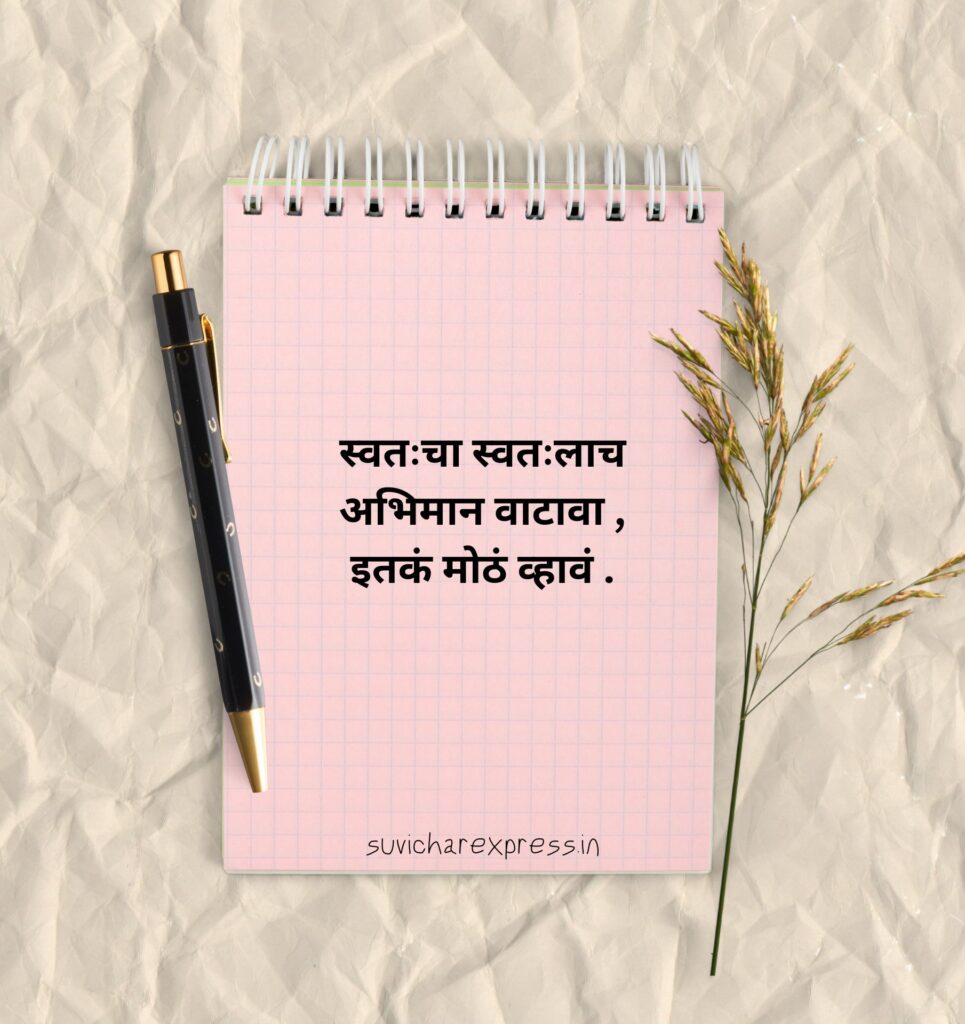 स्वतःचा स्वतःलाच
अभिमान वाटावा ,
इतकं मोठं व्हावं .
suvicharexpress.in